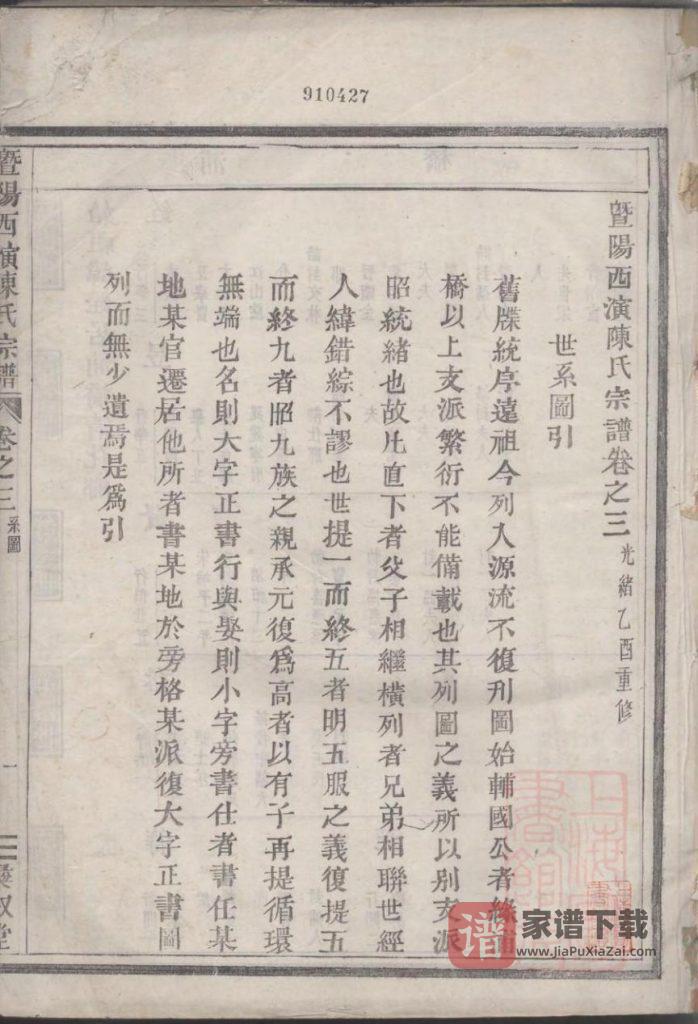 910427
暨陽西演陳氏宗譜卷之三 光緒乙酉重修
世系圖引
舊牒統序遠祖今列入源流不復刋圖始輔國公者緣浦
橋以上支派繁衍不能備載也其列圖之義所以别支派
昭統緒也故凡直下者父子相繼橫列者兄弟相聯世經
人緯錯綜不謬也世提一而終五者明五服之義復提五
而終九者昭九族之親承元復爲高者以有子再提循環
無端也名則大字正書行與娶則小字旁書仕者書任某
地某官遷居他所者書某地於旁格某派復大字正書圖
列而無少遺焉是爲引
暨陽西演陳氏宗譜 卷之三 系圖 一
上海
圖書館
書
譜
家谱下载
www.JiaPuXiaZai.com